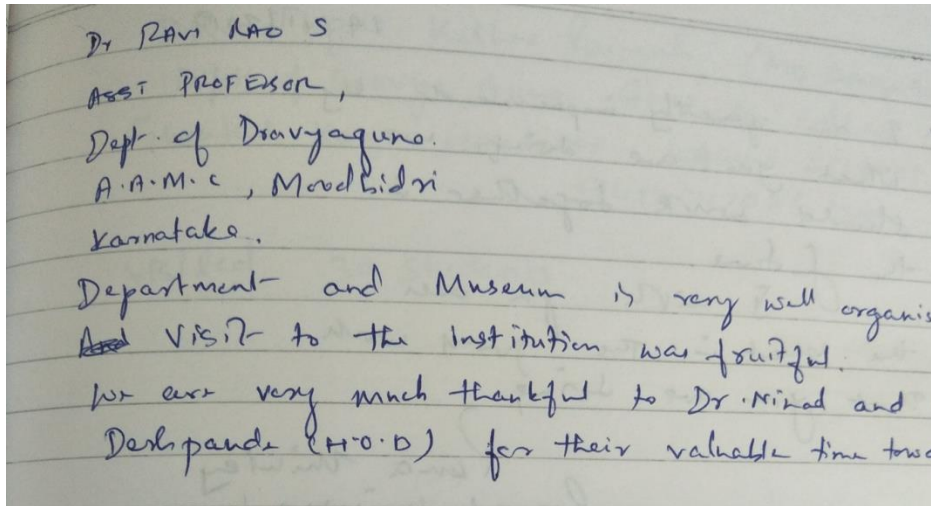 Dr RAVI RAO S
ASST PROFESSOR,
Dept. of Dravyaguna.
A.A.M.C, Moodbidri
Karnataka.
Department and Museum is very well organis
And Visit to the Institution was fruitful.
We are very much thankful to Dr. Ninad and
Deshpande (H.O.D) for their valuable time towa